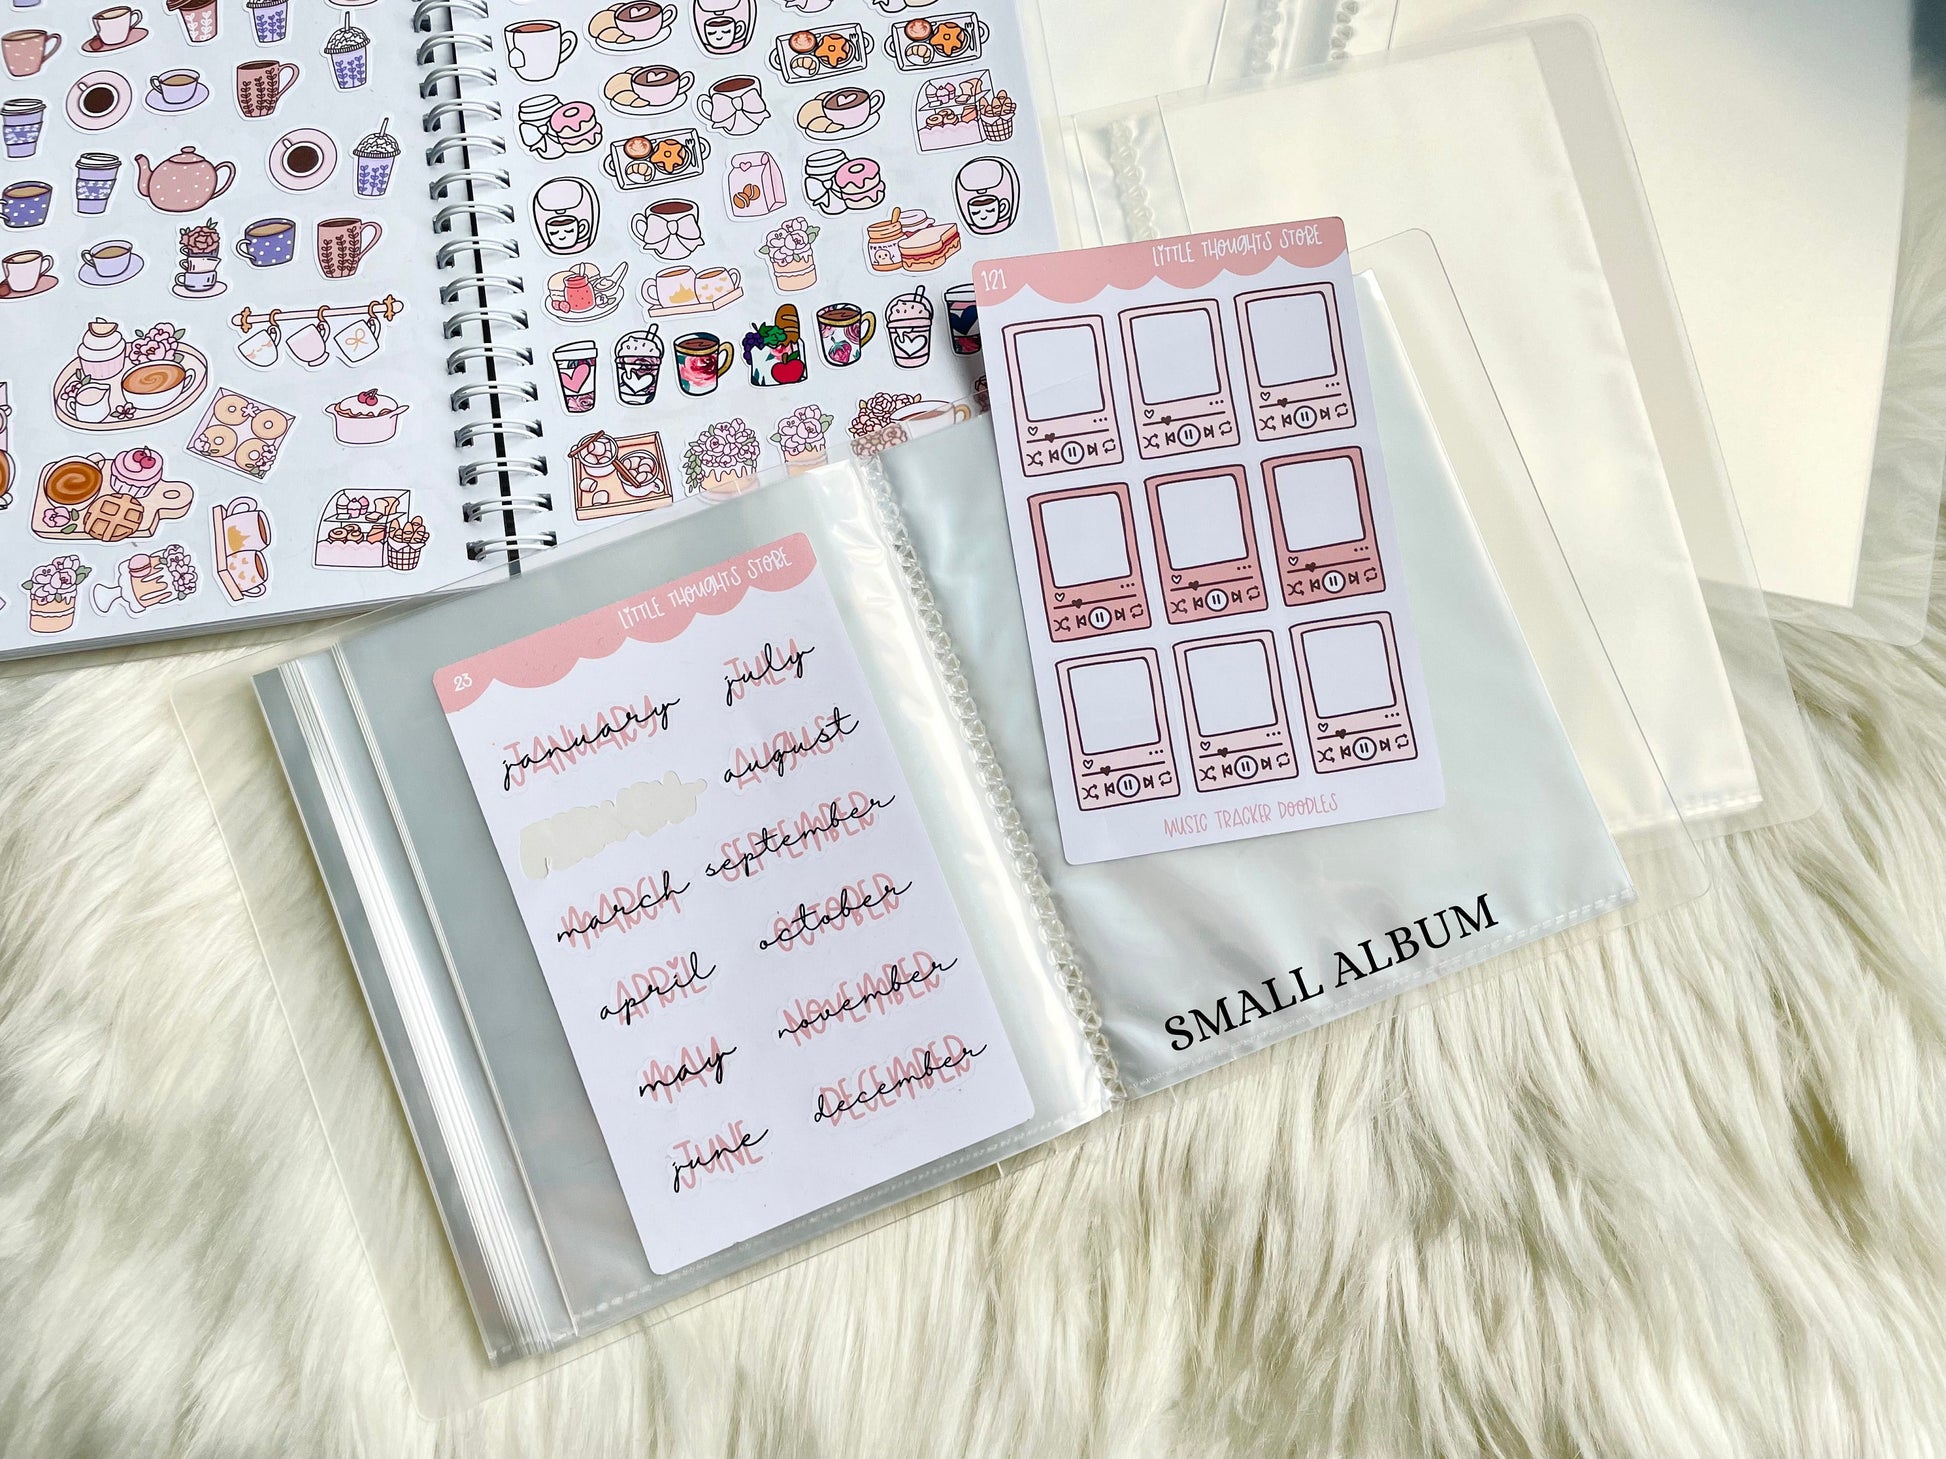 LITTLE THOUGHTS STORE
23
JANUARY january
JULY july
AUGUST august
MARCH march
SEPTEMBER september
APRIL april
OCTOBER october
MAY may
NOVEMBER november
JUNE june
DECEMBER december
LITTLE THOUGHTS STORE
121
MUSIC TRACKER DOODLES
SMALL ALBUM